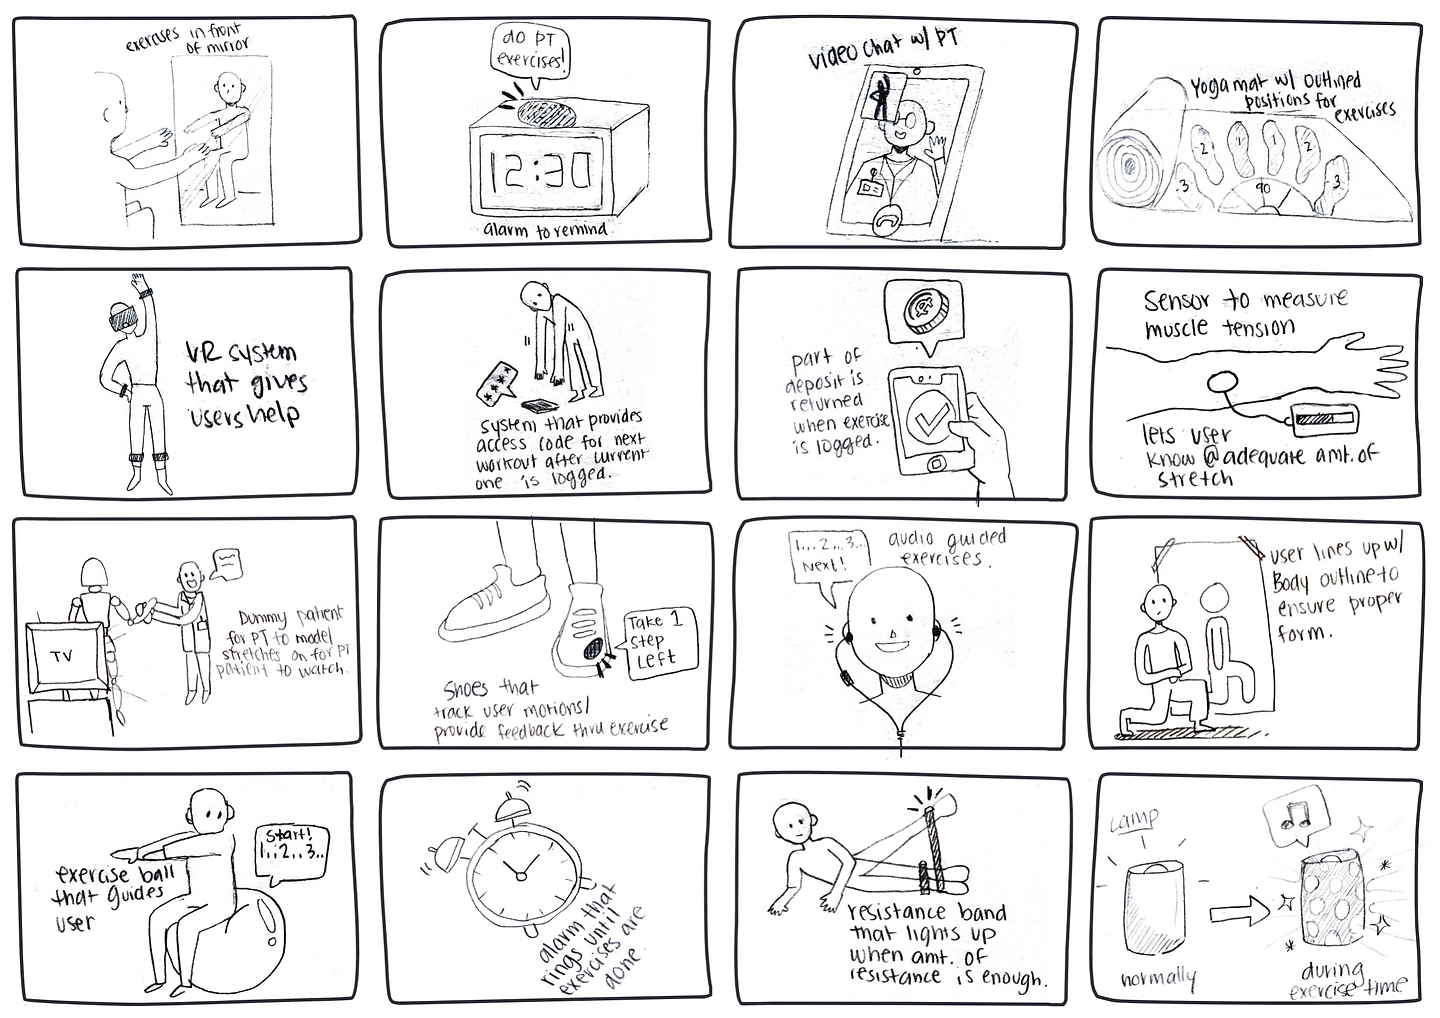 exercises in front
of mirror
do PT
exercises!
12:30
alarm to remind.
video chat w/ PT
Yoga mat w/ outlined
positions for
exercises
3
2
1
1
2
3
90
VR system
that gives
users help
****
system that provides
access code for next
workout after current
one is logged.
part of
deposit is
returned
when exercise
is logged.
Sensor to measure
muscle tension
lets user
know @ adequate amt. of
stretch
TV
Dummy patient
for PT to model
stretches on for PT
patient to watch.
Take 1
step
Left
Shoes that
track user motions/
provide feedback thru exercise
1,,,2,,,3,..
Next!
audio guided
exercises.
user lines up w/
Body outline to
ensure proper
form.
Start!
1,,2,,3..
exercise ball
that guides
user
alarm that
rings until
exercises are
done.
resistance band
that lights up
when amt. of
resistance is enough.
Lamp
normally
during
exercise time